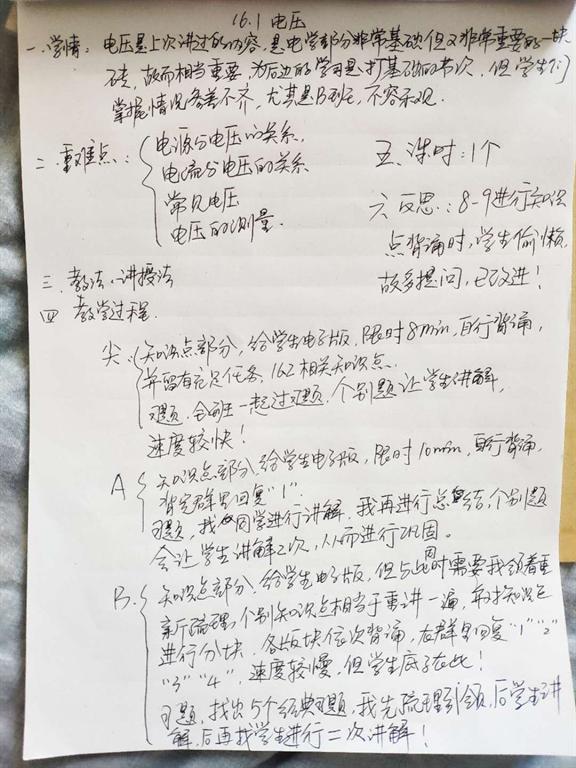 16.1 电压
一.学情：电压是上次讲过的内容，是电学部分非常基础但又非常重要的一块
砖，故而相当重要，为后边的学习是打基础的节次，但学生们
掌握情况参差不齐，尤其是B班，不容乐观.
二.重难点：
电源与电压的关系.
电流与电压的关系
常见电压
电压的测量.
五.课时：1个
六.反思：8-9进行知识
点背诵时，学生偷懒，
故多提问，已改进！
三.教法.讲授法
四 教学过程.
尖：知识点部分，给学生电子版，限时8min，自行背诵，
并留有充足任务.16.2相关知识点.
习题.全班一起过习题.个别题让学生讲解，
速度较快！
A 知识点部分，给学生电子版，限时10min，自行背诵，
背完群里回复“1”.
习题，找同学进行讲解.我再进行总结，个别题
会让学生讲解2次，从而进行巩固。
B. 知识点部分.给学生电子版，但与此同时需要我领着重
新梳理，个别知识点相当于重讲一遍，再把知识点
进行分块.各版块依次背诵，在群里回复“1”“2”
“3”“4”，速度较慢，但学生底子在此！
习题，找出5个经典习题，我先梳理引领，后学生讲
解，后再找学生进行二次讲解！